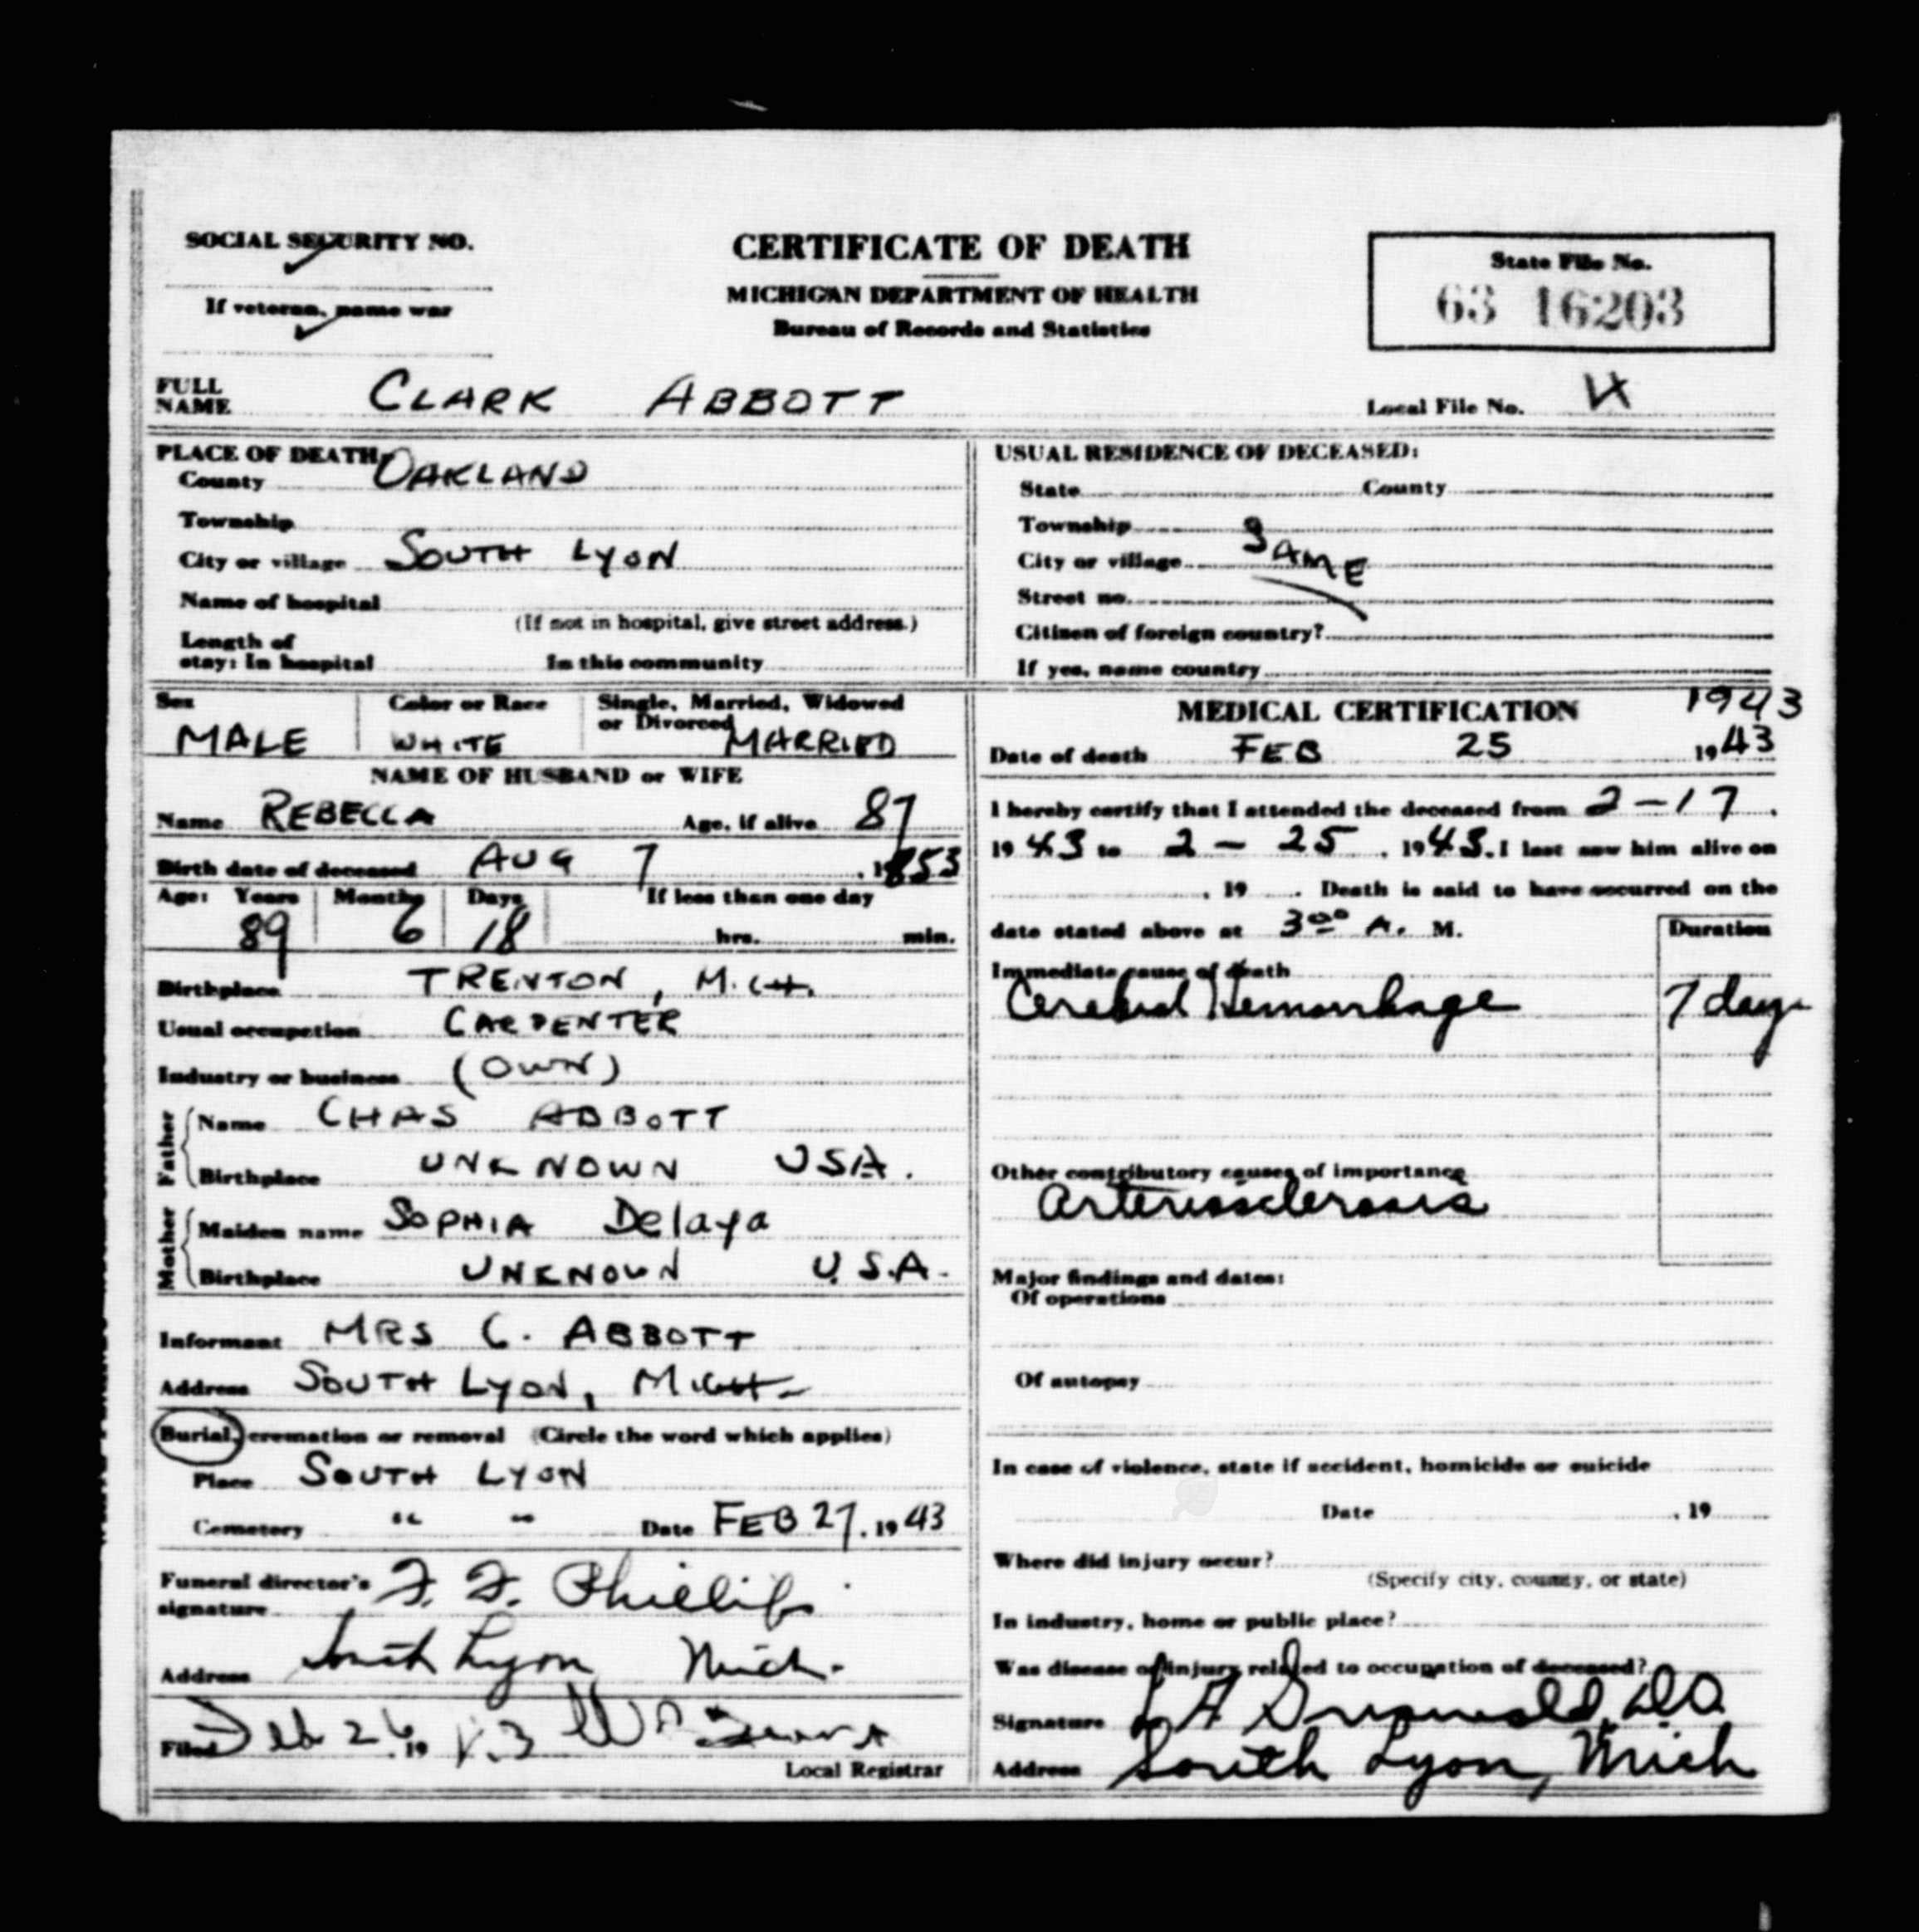 SOCIAL SECURITY NO.
CERTIFICATE OF DEATH
MICHIGAN DEPARTMENT OF HEALTH
Bureau of Records and Statistics
State File No.
63 16203
If veteran, name war
FULL NAME CLARK ABBOTT
Local File No. 4
PLACE OF DEATH:
County OAKLAND
Township
City or village SOUTH LYON
Name of hospital
(If not in hospital, give street address.)
Length of
stay: In hospital In this community
USUAL RESIDENCE OF DECEASED:
State County
Township SAME
City or village
Street no.
Citizen of foreign country?
If yes, name country
Sex Color or Race Single, Married, Widowed
or Divorced
MALE WHITE MARRIED
NAME OF HUSBAND or WIFE
Name REBECCA Age, if alive 87
Birth date of deceased AUG 7, 1853
Age: Years Months Days If less than one day
89 6 18 hrs. min.
Birthplace TRENTON, MICH.
Usual occupation CARPENTER
Industry or business (OWN)
Father
Name CHAS ABBOTT
Birthplace UNKNOWN USA.
Mother
Maiden name SOPHIA Delaya
Birthplace UNKNOWN U.S.A.
Informant MRS C. ABBOTT
Address SOUTH LYON, MICH.
Burial, cremation or removal (Circle the word which applies)
Place SOUTH LYON
Cemetery " " Date FEB 27, 1943
Funeral director's
signature F. F. Phillips
Address South Lyon Mich.
Filed Feb 26 19
Local Registrar
MEDICAL CERTIFICATION 1943
Date of death FEB 25 1943
I hereby certify that I attended the deceased from 2-17,
1943 to 2 - 25, 1943. I last saw him alive on
, 19 . Death is said to have occurred on the
date stated above at 3 00 A. M.
Duration
Immediate cause of death
Cerebral Hemorrhage 7 days
Other contributory causes of importance
Arteriosclerosis
Major findings and dates:
Of operations
Of autopsy
In case of violence, state if accident, homicide or suicide
Date , 19
Where did injury occur?
(Specify city, county, or state)
In industry, home or public place?
Was disease or injury related to occupation of deceased?
Signature L A D.O.
Address South Lyon, Mich